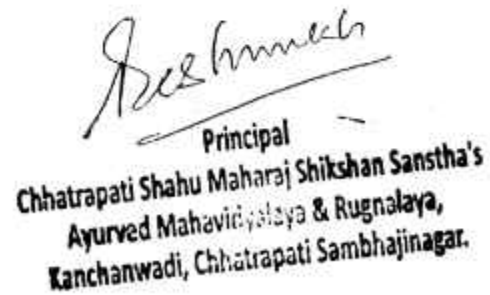 Deshmukh
Principal
Chhatrapati Shahu Maharaj Shikshan Sanstha's
Ayurved Mahavidyalaya & Rugnalaya,
Kanchanwadi, Chhatrapati Sambhajinagar.